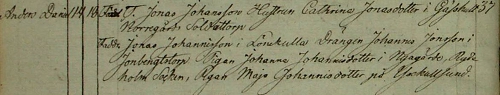 Anders Daniel 14 18 Född F. Jonas Johansson Hustrun Cathrina Jonasdotter i Gäfskull 37
Norregårds Soldattorp
Fadd. Jonas Johannisson i Lönekulla Drängen Johannis Jönsson i
Jonbengtstorp Pigan Johanna Johannisdotter i Nygård, Ryde
holm Socken, Pigan Maja Johannisdotter på Ysekullsund.